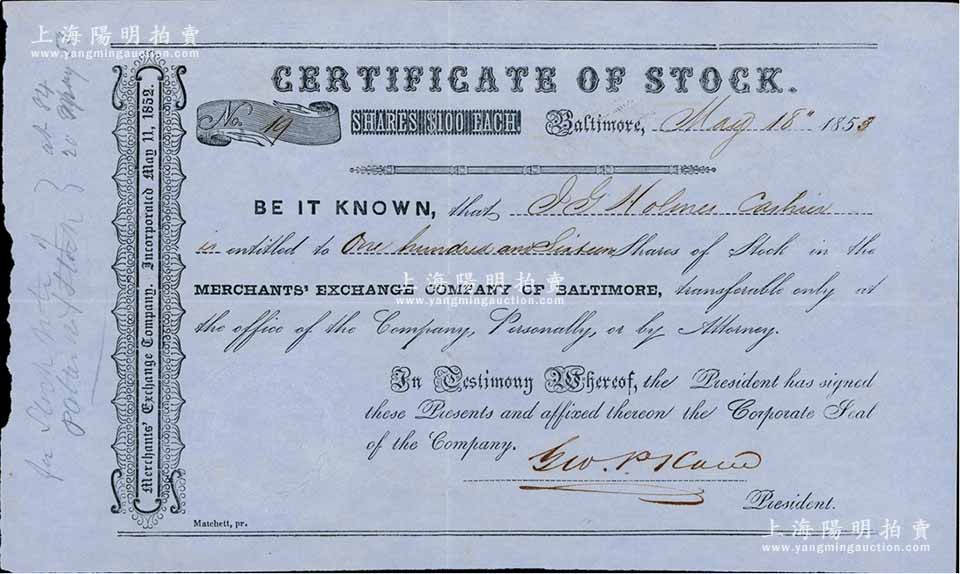 上海陽明拍賣
www.yangmingauction.com
CERTIFICATE OF STOCK.
No. 19
SHARES $100 EACH.
Baltimore, May 18" 1853
BE IT KNOWN, that J G Holmes Cashier
is entitled to One hundred and Sixteen Shares of Stock in the
MERCHANTS' EXCHANGE COMPANY OF BALTIMORE, transferable only at
the office of the Company, Personally, or by Attorney.
In Testimony Whereof, the President has signed
these Presents and affixed thereon the Corporate Seal
of the Company.
Geo. P. Kane
President.
Matchett, pr.
Merchants' Exchange Company. Incorporated May 11, 1852.
for Stock
at 84
20
上海陽明拍賣
www.yangmingauction.com
上海陽明拍賣
www.yangmingauction.com